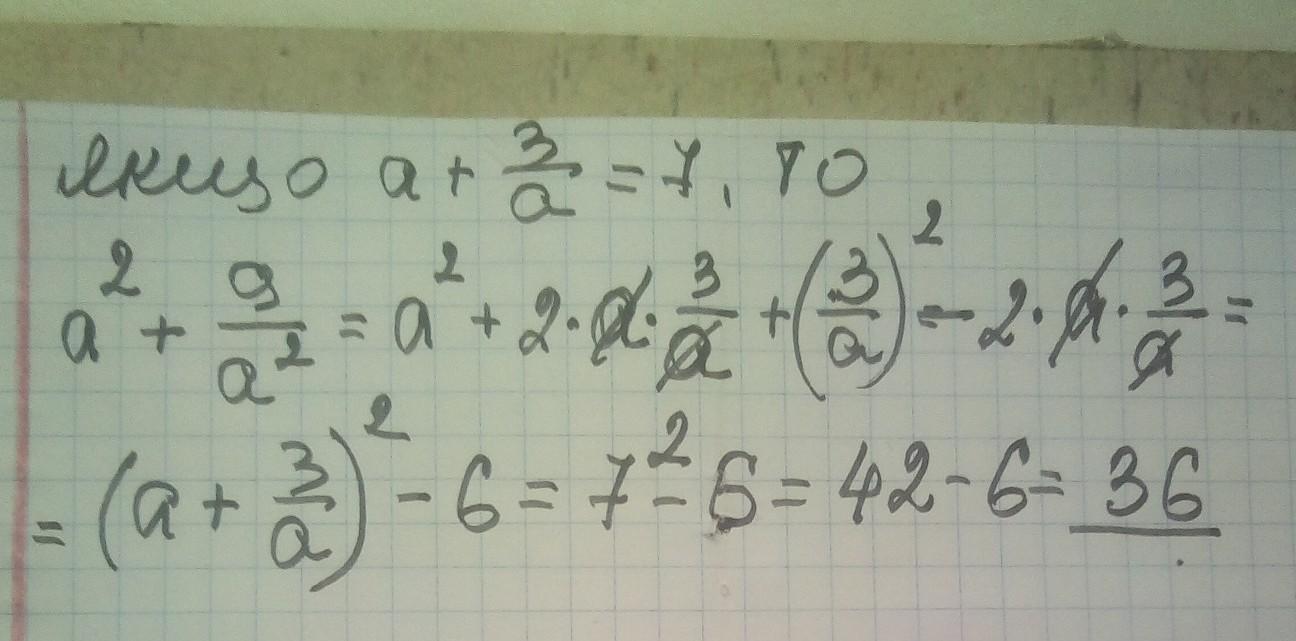 якщо a + 3/a = 7, то
a² + 9/a² = a² + 2·a·3/a + (3/a)² - 2·a·3/a =
= (a + 3/a)² - 6 = 7² - 6 = 42 - 6 = 36